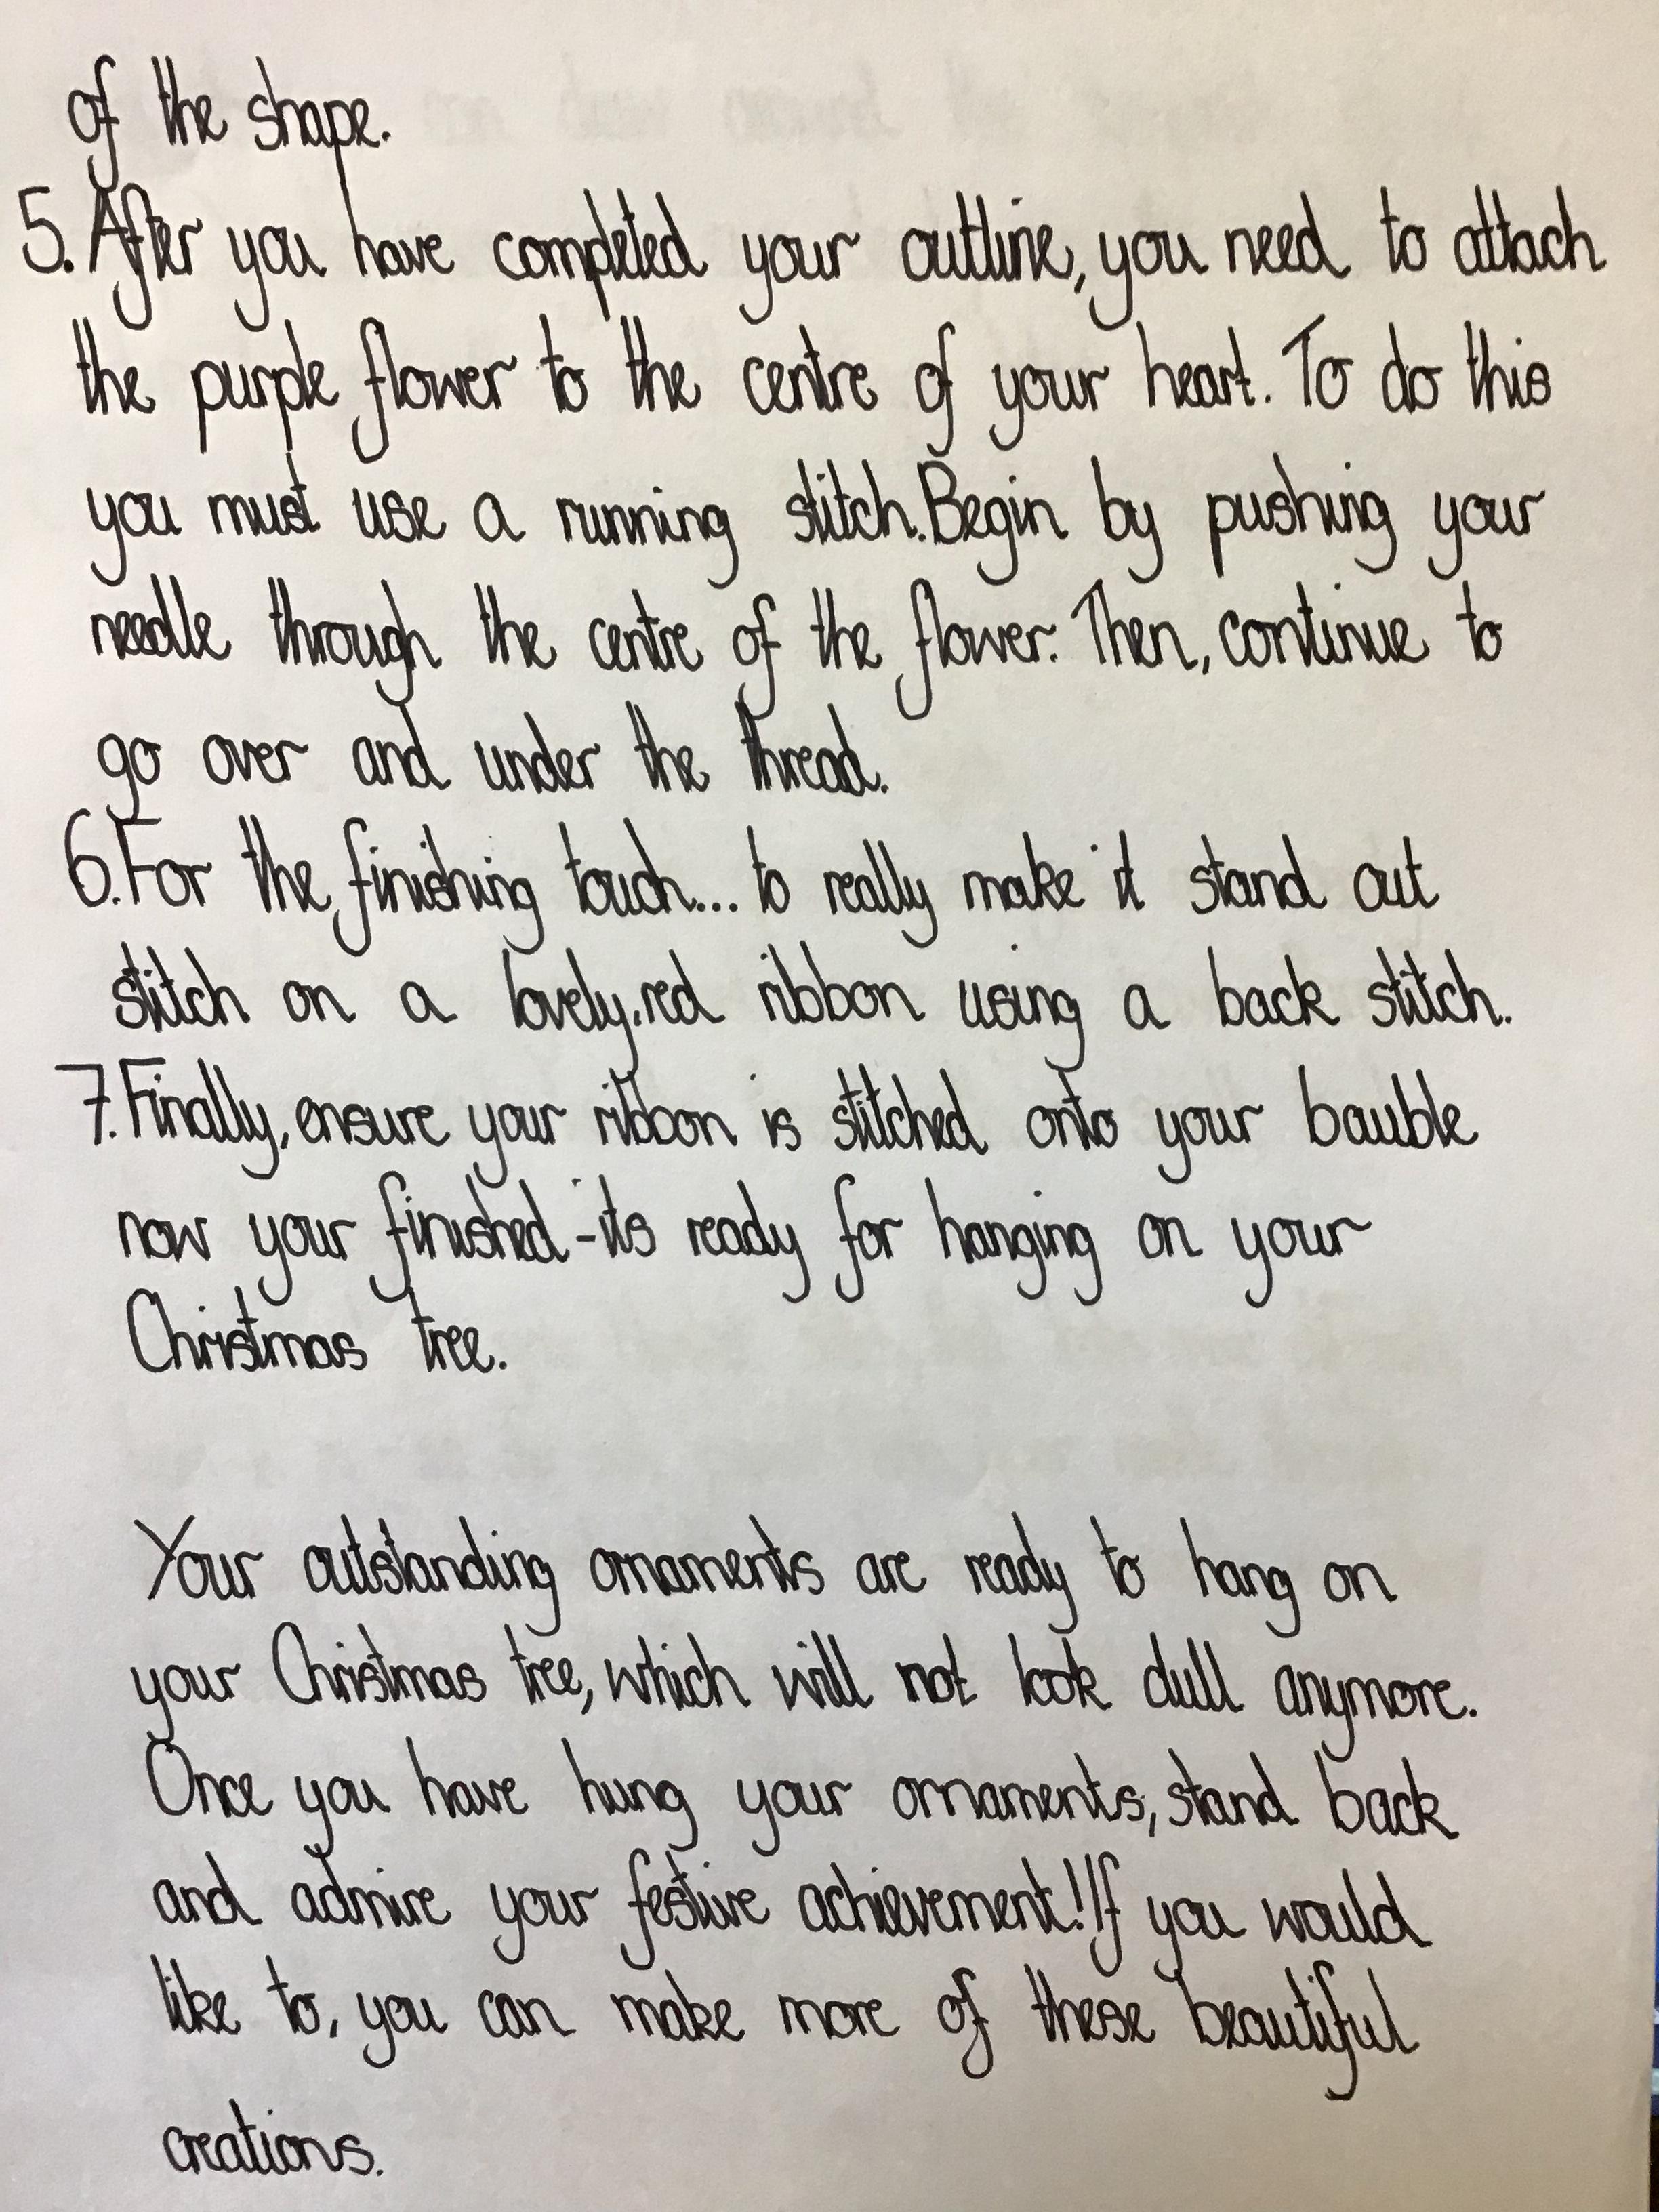 of the shape.
5. After you have completed your outline, you need to attach
the purple flower to the centre of your heart. To do this
you must use a running stitch. Begin by pushing your
needle through the centre of the flower. Then, continue to
go over and under the thread.
6. For the finishing touch... to really make it stand out
stitch on a lovely, red ribbon using a back stitch.
7. Finally, ensure your ribbon is stitched onto your bauble
now your finished - its ready for hanging on your
Christmas tree.
Your outstanding ornaments are ready to hang on
your Christmas tree, which will not look dull anymore.
Once you have hung your ornaments, stand back
and admire your festive achievement! If you would
like to, you can make more of these beautiful
creations.